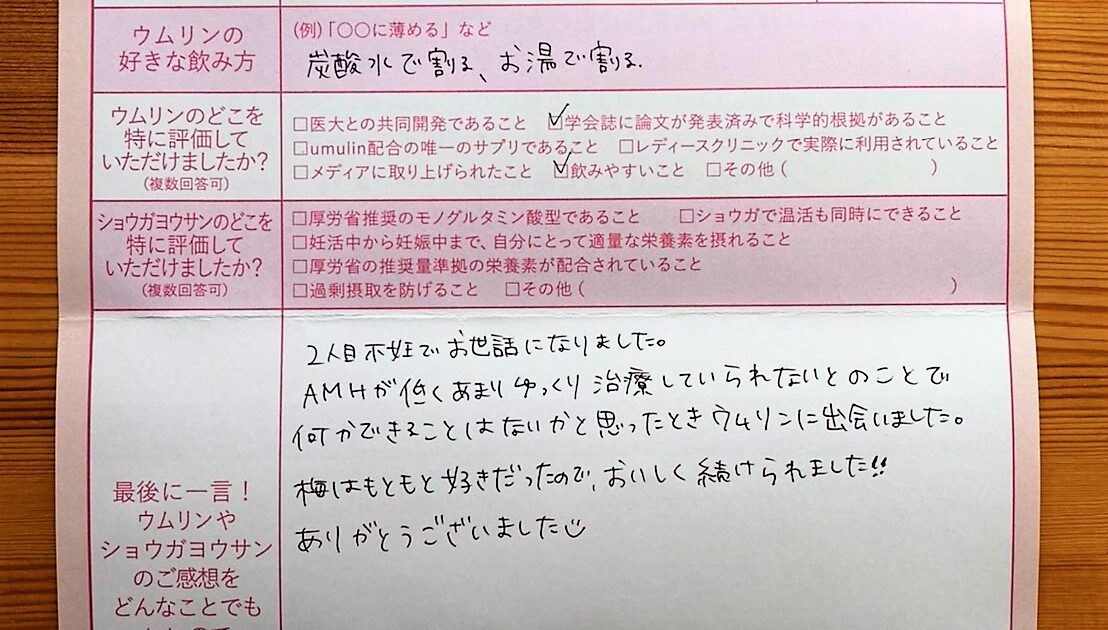 ウムリンの
好きな飲み方
(例)「〇〇に薄める」など
炭酸水で割る、お湯で割る.
ウムリンのどこを
特に評価して
いただけましたか?
(複数回答可)
□医大との共同開発であること ☑学会誌に論文が発表済みで科学的根拠があること
□umulin配合の唯一のサプリであること □レディースクリニックで実際に利用されていること
□メディアに取り上げられたこと ☑飲みやすいこと □その他( )
ショウガヨウサンのどこを
特に評価して
いただけましたか?
(複数回答可)
□厚労省推奨のモノグルタミン酸型であること □ショウガで温活も同時にできること
□妊活中から妊娠中まで、自分にとって適量な栄養素を摂れること
□厚労省の推奨量準拠の栄養素が配合されていること
□過剰摂取を防げること □その他( )
最後に一言!
ウムリンや
ショウガヨウサン
のご感想を
どんなことでも
2人目不妊でお世話になりました。
AMHが低くあまりゆっくり治療していられないとのことで
何かできることはないかと思ったときウムリンに出会いました。
梅はもともと好きだったので、おいしく続けられました!!
ありがとうございました